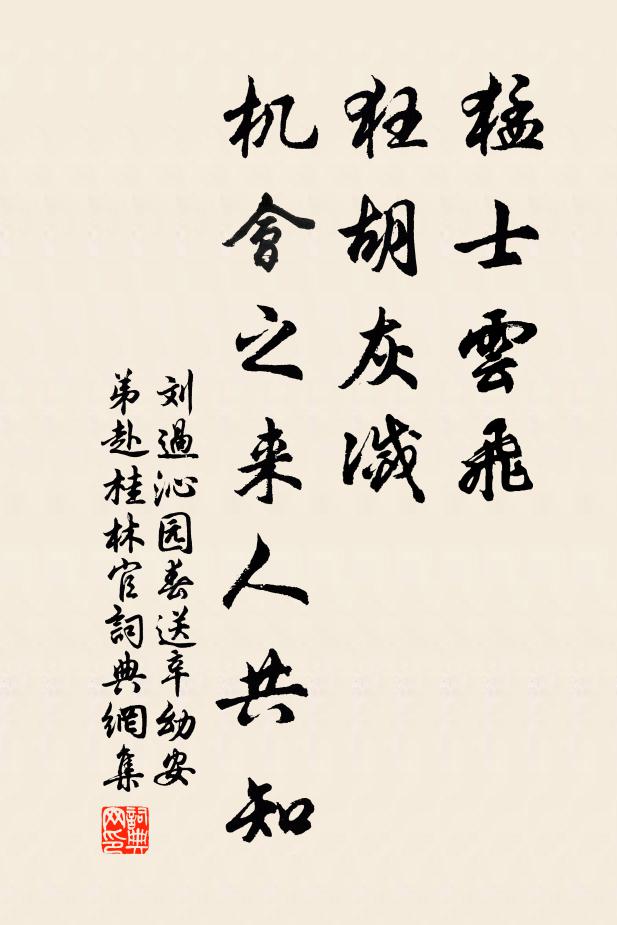 猛士雲飛
狂胡灰滅
机會之来人共知
刘過沁园春送辛幼安
弟赴桂林官詞典網集
詞典网印